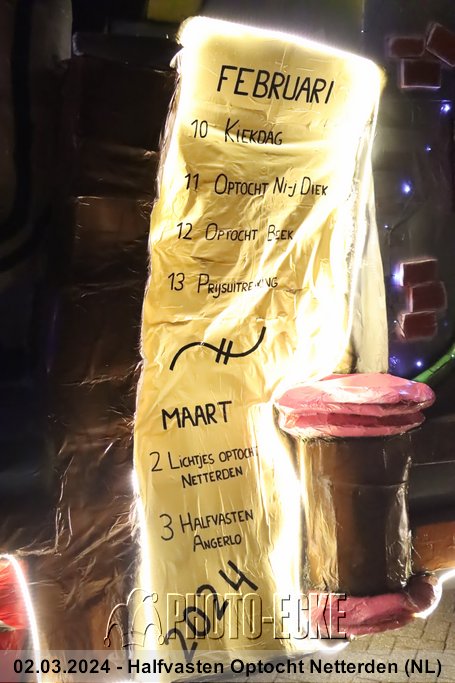 FEBRUARI
10 KIEKDAG
11 OPTOCHT NI-J DIEK
12 OPTOCHT BEEK
13 PRIJSUITREIKING
MAART
2 LICHTJES OPTOCHT
NETTERDEN
3 HALFVASTEN
ANGERLO
2024
PHOTO-ECKE
02.03.2024 - Halfvasten Optocht Netterden (NL)